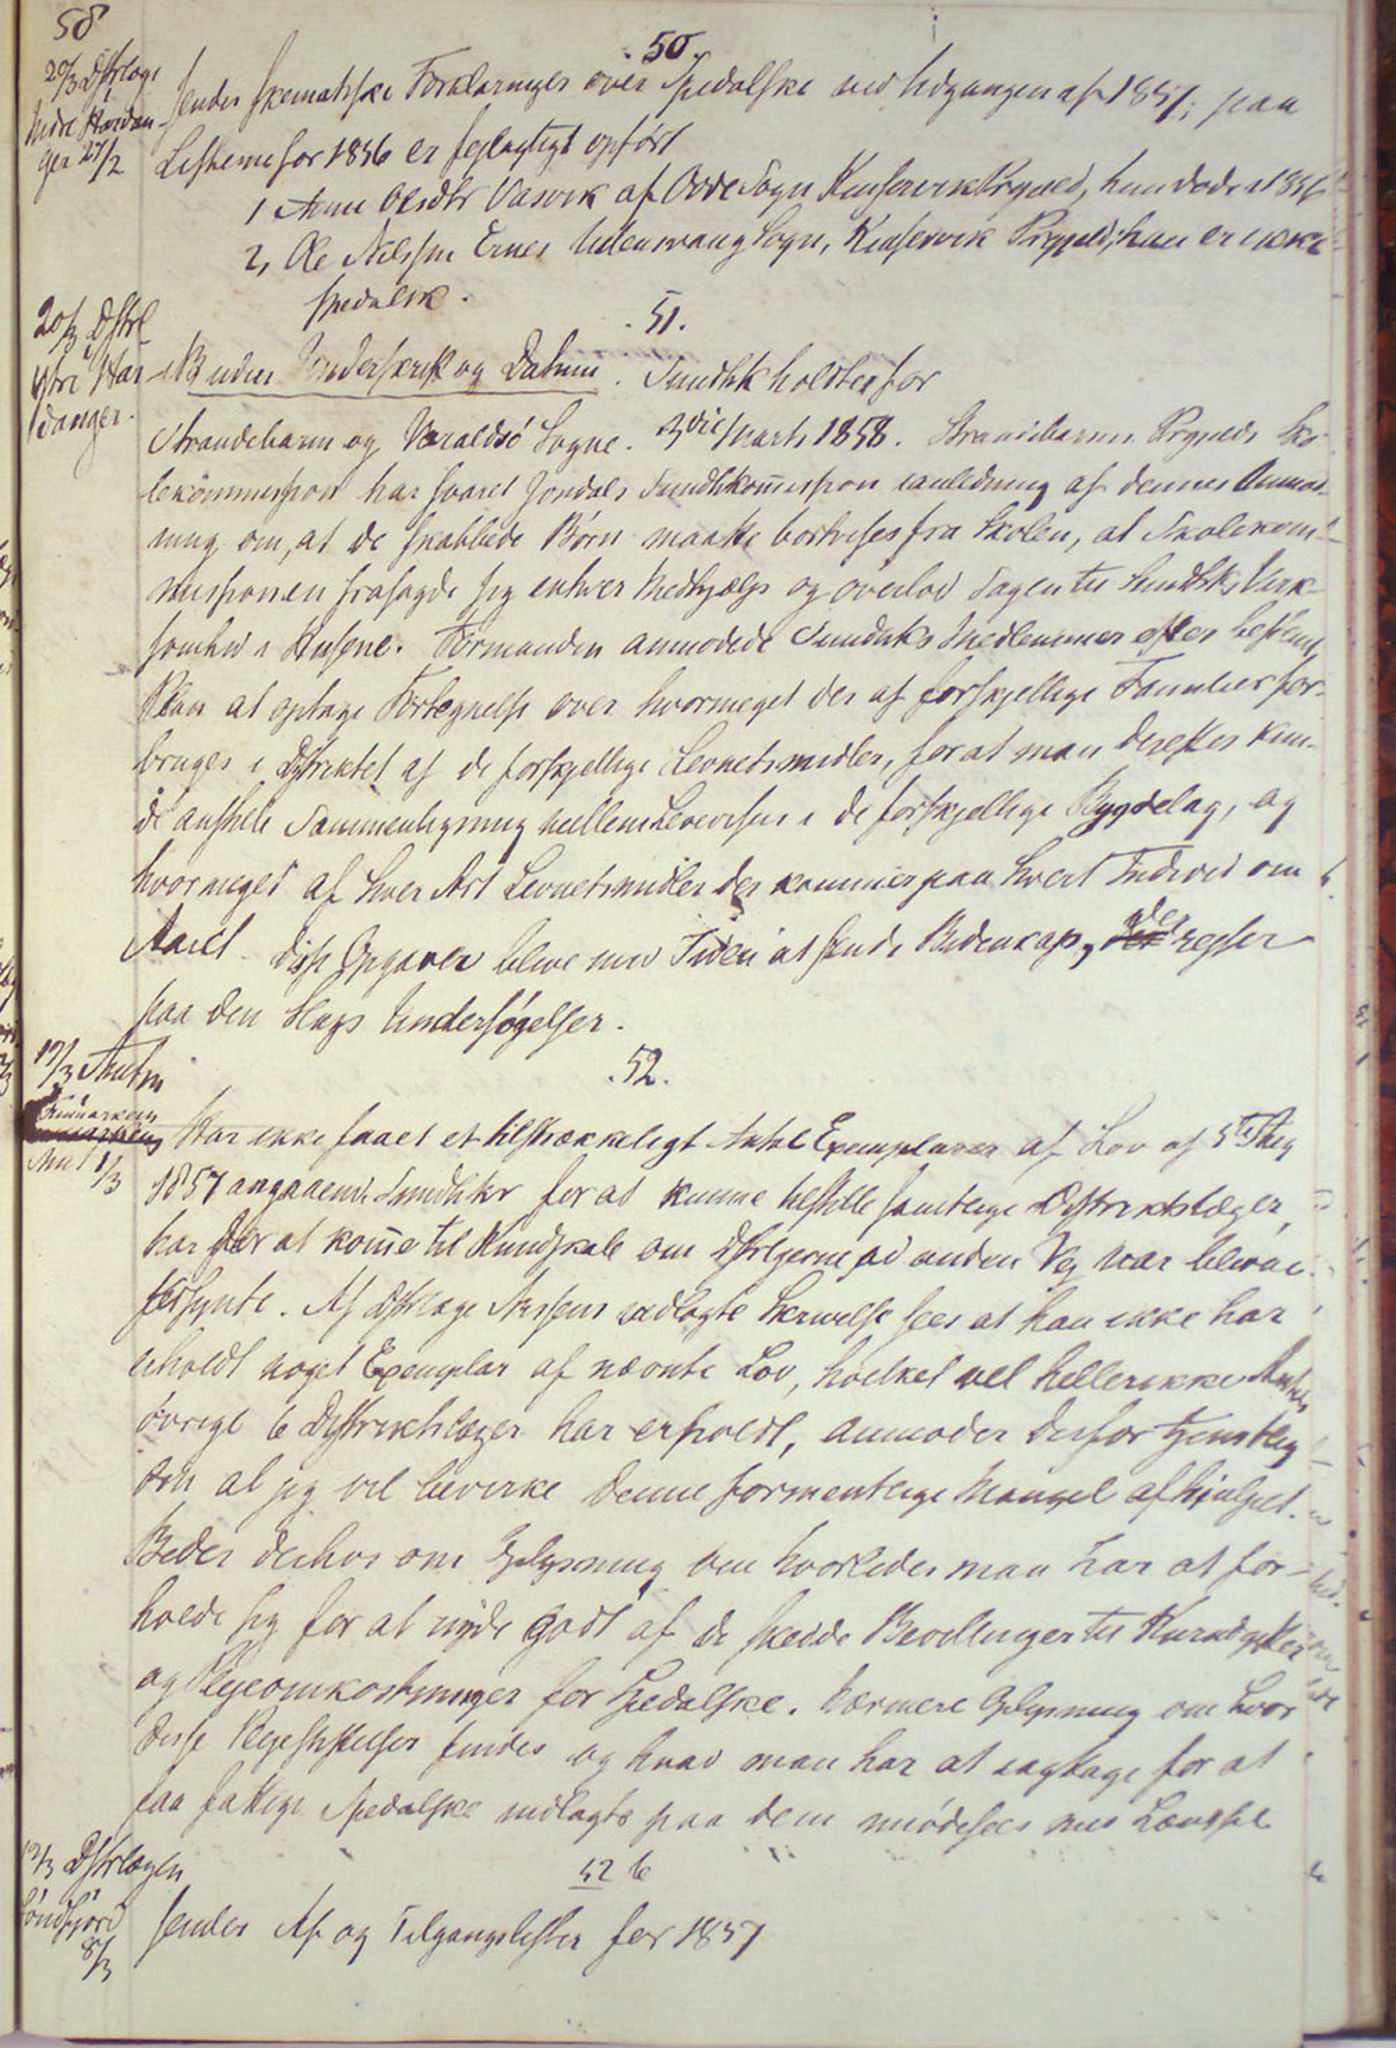 58
50.
20/3 Dstrlæge
i
Indre Hardan-
ger 27/2
sender skematiske Forklaringer over Spedalske ved Udgangen af 1857; paa
Listerne for 1856 er fejlagtigt opført
1 Anne Olsdtr Vasvik af Odde Sogn Kinservik Prgjeld, hun døde i 1856
2, Ole Nilssen Ernes Ullensvang Sogn, Kinservik Prgjeld; han er ikke
spedalsk.
51.
20/3 Dstrl
i
Ytre Har
danger.
NB uden Underskrift og Datum. Sundhk holdtes for
Strandebarm og Varaldsö Sogne. 3die Marts 1858. Strandebarms Prgjelds Sko-
lekommission har svaret Jondals Sundhkommission i anledning af dennes Anmod-
ning om, at de skabbede Børn maatte bortvises fra Skolen, at Skolekom-
missionen frasagde sig enhver Medhjælp og overlod Sagen til Sundhks Virk-
somhed i Husene. Formanden anmodede Sundhks Medlemmer efter bestemt
Plan at optage Fortegnelse over hvormeget der af forskjellige Familier for-
bruges i Distriktet af de forskjellige Levnetsmidler, for at man derefter kun-
de anstille Sammenligning mellem Levevisen i de forskjellige Bygdelag, og
hvormeget af hver Art Levnetsmidler der kommer paa hvert Individ om
Aaret. Disse Opgaver blive med Tiden at sende Videnskap, der
paa den Slags Undersøgelser.
17/3 Amtm
Finmarkens
Amt 1/3
52.
Har ikke faaet et tilstrækkeligt Antal Exemplarer af Lov af
1857 angaaende Sundhkr for at kunne tilstille samtlige Distriktslæger,
har for at komme til Kundskab om Dstrlgerne ad anden Vej var blevne
forsynte. Af Dstrlæge vedlagte Skrivelse sees at han ikke har
erholdt noget Exemplar af nævnte Lov, hvilket vel heller ikke Amtets
övrige 6 Distriktslæger har erholdt, anmoder derfor tjenstlig
om at jeg vil bevirke denne formentlige Mangel afhjulpet.
Beder derhos om Oplysning om hvorledes man har at for-
holde sig for at nyde godt af de skedde Bevillinger til Kurudgifter
og Plejeomkostninger for Spedalske. Nærmere Oplysning om hvor
disse Plejestiftelser findes og hvad man har at iagttage for at
faa fattige Spedalske indlagte paa dem imødesees med Længsel
12/3 Dstrlægen
i
Söndfjord
8/3
52 b
sender Af og Tilgangslister for 1857